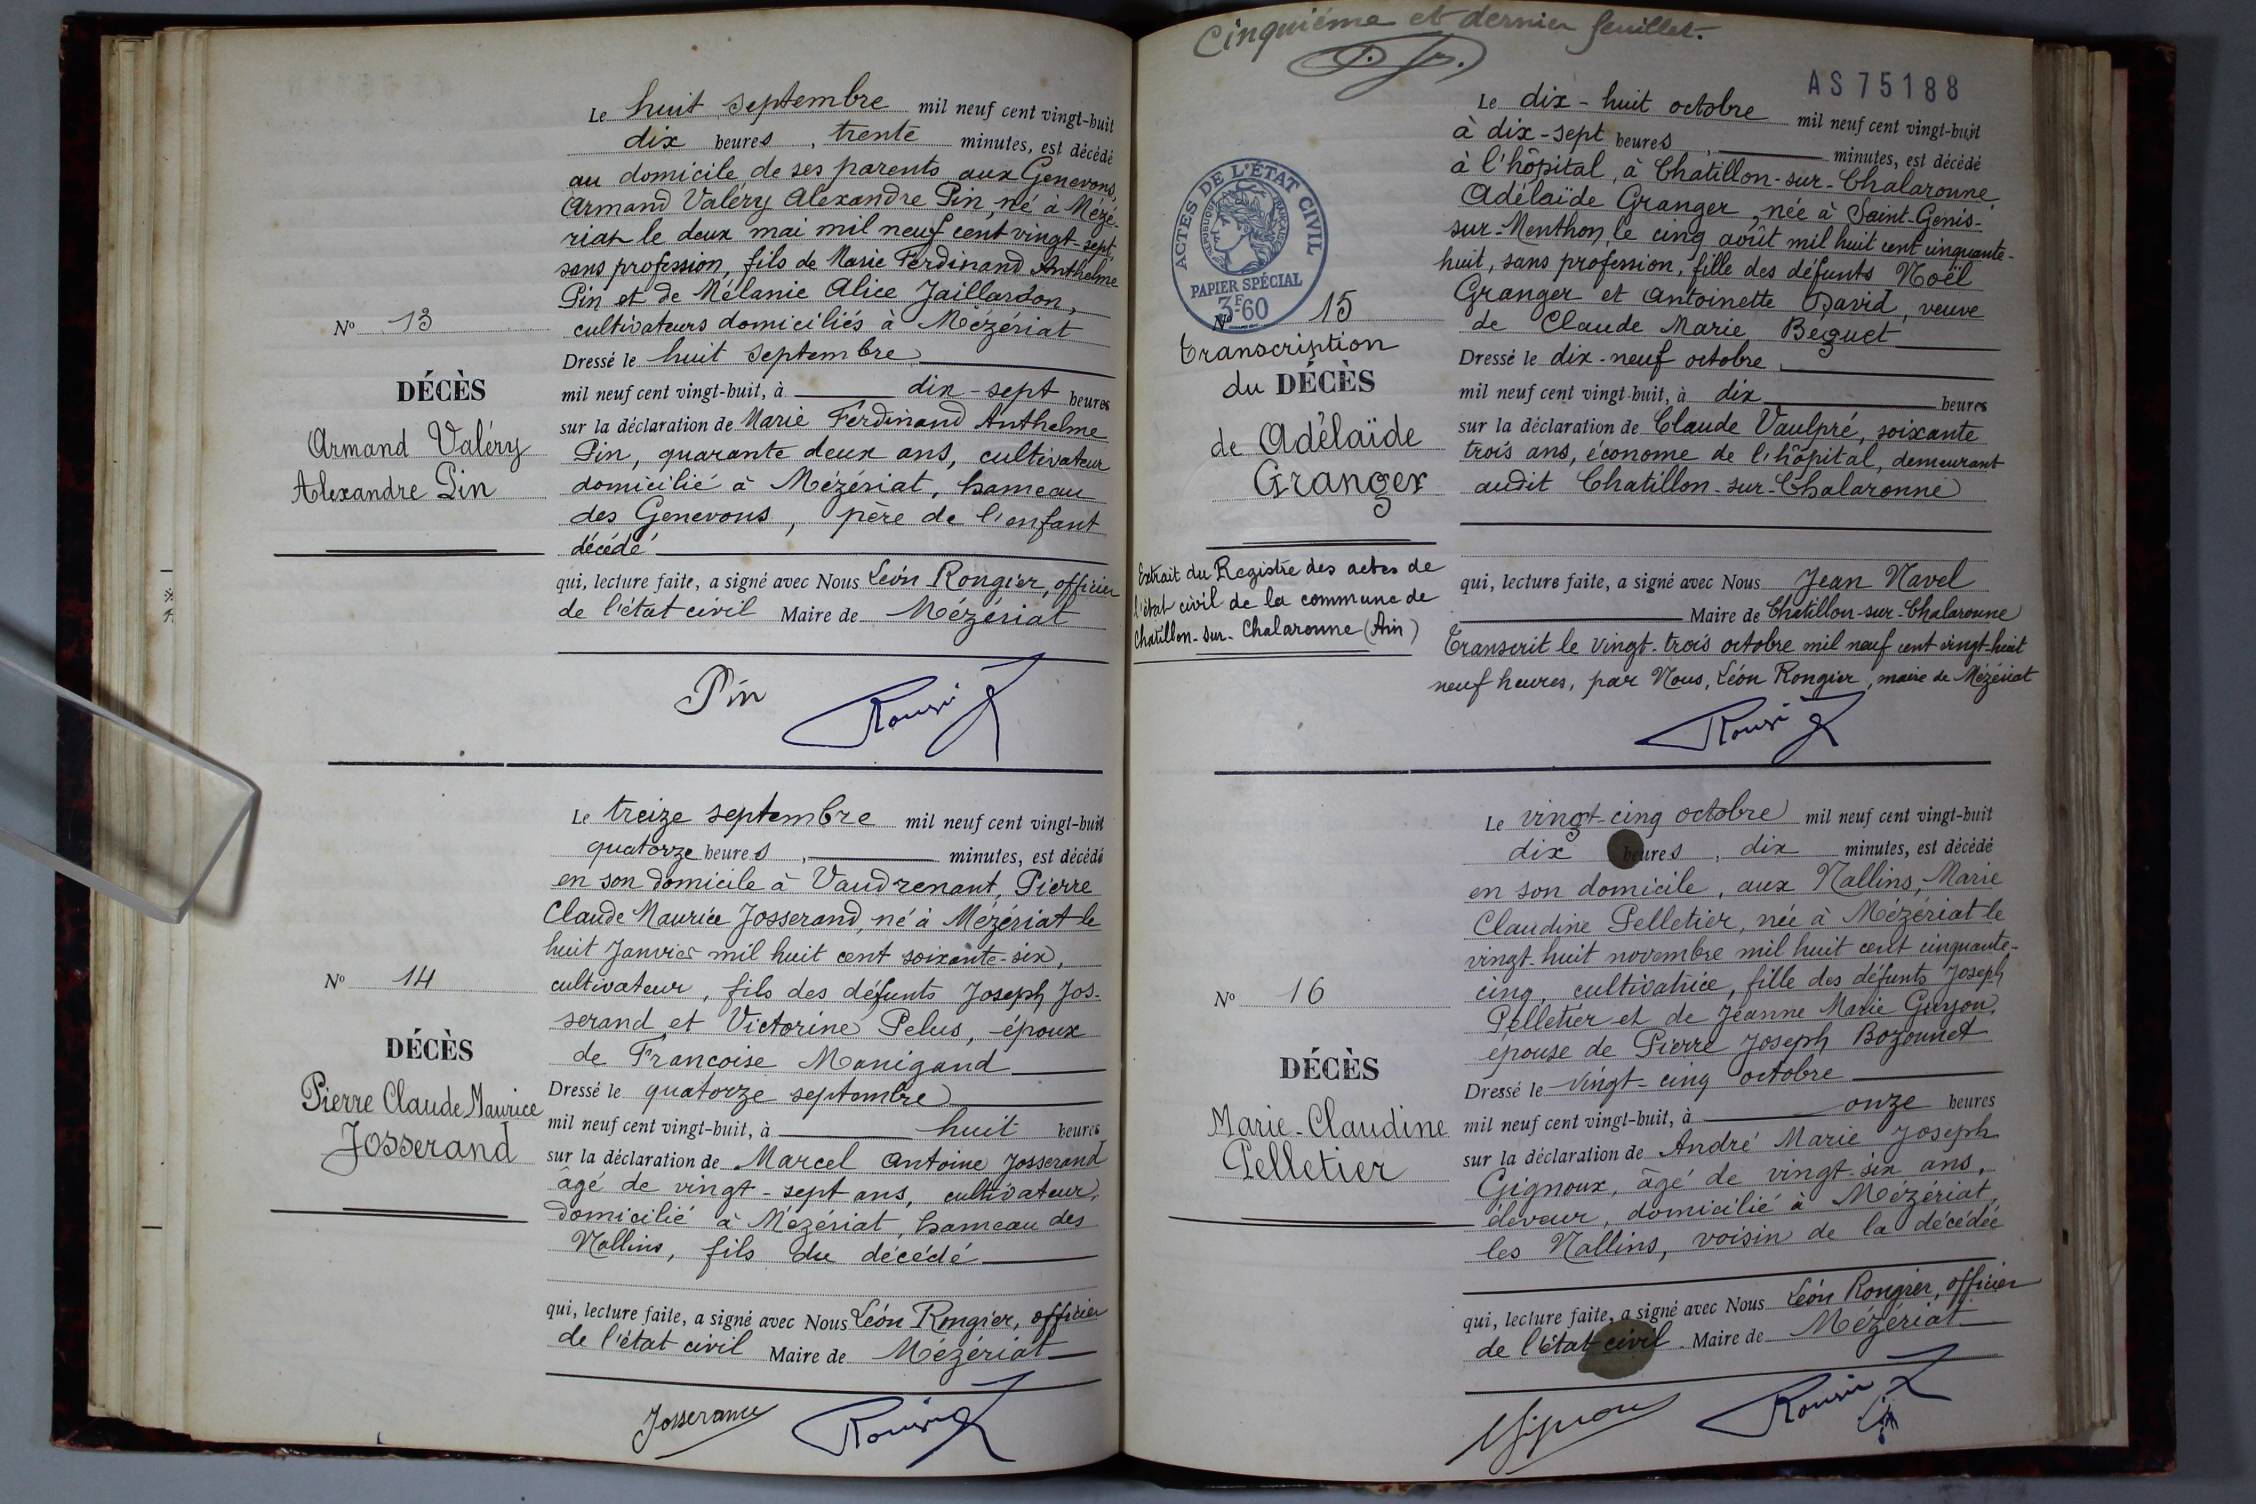 Le huit septembre mil neuf cent vingt-huit
dix heures, trente minutes, est décédé
au domicile de ses parents aux Genevons,
Armand Valéry Alexandre Pin, né à Mézé-
riat le deux mai mil neuf cent vingt-sept,
sans profession, fils de Marie Ferdinand Anthelme
Pin et de Mélanie Alice Jaillardon,
cultivateurs domiciliés à Mézériat
Dressé le huit septembre
mil neuf cent vingt-huit, à dix-sept heures
sur la déclaration de Marie Ferdinand Anthelme
Pin, quarante deux ans, cultivateur
domicilié à Mézériat, hameau
des Genevons, père de l'enfant
décédé
qui, lecture faite, a signé avec Nous Léon Rongier, officier
de l'état civil Maire de Mézériat
Nº 13
DÉCÈS
Armand Valéry
Alexandre Pin
Pin
Le treize septembre mil neuf cent vingt-huit
quatorze heures, minutes, est décédé
en son domicile à Vaudrenant, Pierre
Claude Maurice Josserand, né à Mézériat le
huit Janvier mil huit cent soixante-six,
cultivateur, fils des défunts Joseph Jos-
serand et Victorine Pelus, époux
de Francoise Manigand
Dressé le quatorze septembre
mil neuf cent vingt-huit, à huit heures
sur la déclaration de Marcel Antoine Josserand
âgé de vingt-sept ans, cultivateur,
domicilié à Mézériat, hameau des
Nallins, fils du décédé
qui, lecture faite, a signé avec Nous Léon Rongier, officier
de l'état civil Maire de Mézériat
Nº 14
DÉCÈS
Pierre Claude Maurice
Josserand
Josserand
Cinquième et dernier feuillet.
AS 75188
Le dix-huit octobre mil neuf cent vingt-huit
à dix-sept heures, minutes, est décédé
à l'hôpital, à Chatillon-sur-Chalaronne
Adélaïde Granger, née à Saint-Genis-
sur-Menthon, le cinq août mil huit cent cinquante-
huit, sans profession, fille des défunts Noël
Granger et Antoinette David, veuve
de Claude Marie Beguet
Dressé le dix-neuf octobre,
mil neuf cent vingt-huit, à dix heures
sur la déclaration de Claude Vaulpré, soixante
trois ans, économe de l'hôpital, demeurant
audit Chatillon-sur-Chalaronne
qui, lecture faite, a signé avec Nous Jean Navel
Maire de Chatillon-sur-Chalaronne
Transcrit le vingt-trois octobre mil neuf cent vingt-huit
neuf heures, par Nous, Léon Rongier, maire de Mézériat
ACTES DE L'ÉTAT CIVIL
RÉPUBLIQUE FRANÇAISE
PAPIER SPÉCIAL
3F60
Nº 15
Transcription
du DÉCÈS
de Adélaïde
Granger
Extrait du Registre des actes de
l'état civil de la commune de
Chatillon-sur-Chalaronne (Ain)
Le vingt-cinq octobre mil neuf cent vingt-huit
dix heures, dix minutes, est décédé
en son domicile, aux Nallins, Marie
Claudine Pelletier, née à Mézériat le
vingt-huit novembre mil huit cent cinquante-
cinq, cultivatrice, fille des défunts Joseph
Pelletier et de Jeanne Marie Guyon,
épouse de Pierre Joseph Bozonnet
Dressé le vingt-cinq octobre
mil neuf cent vingt-huit, à onze heures
sur la déclaration de André Marie Joseph
Gignoux, âgé de vingt-six ans,
éleveur, domicilié à Mézériat,
les Nallins, voisin de la décédée
qui, lecture faite, a signé avec Nous Léon Rongier, officier
de l'état civil. Maire de Mézériat
Nº 16
DÉCÈS
Marie-Claudine
Pelletier